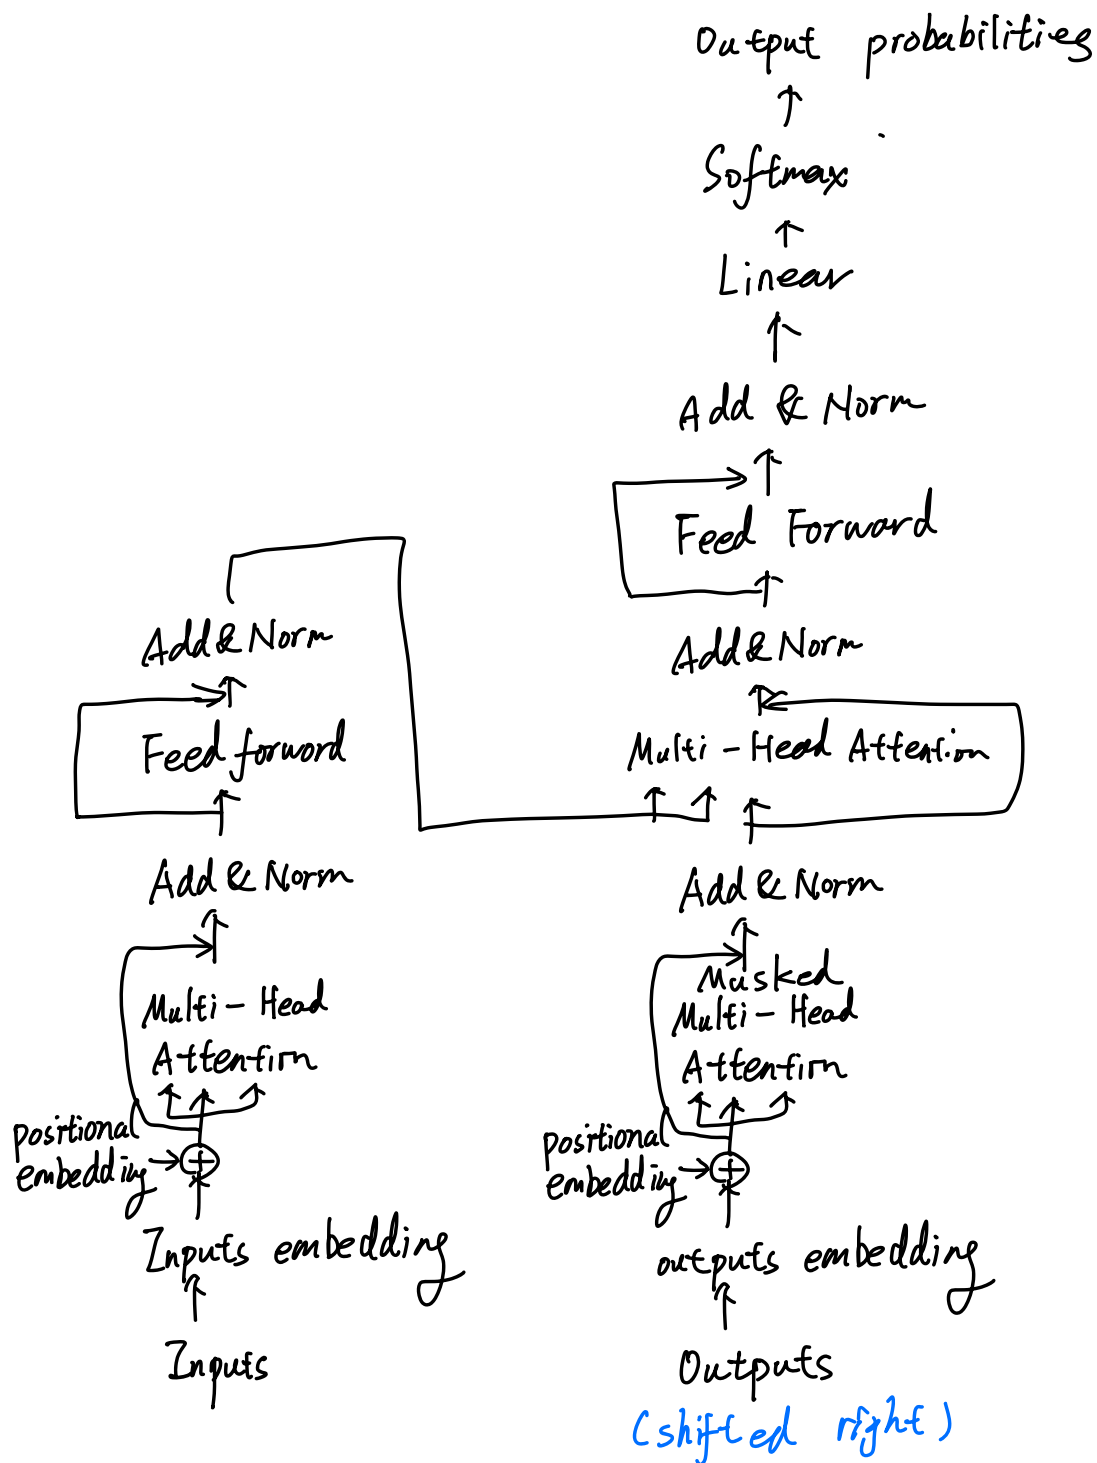 Output probabilities
Softmax
Linear
Add & Norm
Feed Forward
Add & Norm
Multi-Head Attention
Add & Norm
Musked
Multi-Head
Attention
positional
embedding
outputs embedding
Outputs
(shifted right)
Add & Norm
Feed forward
Add & Norm
Multi-Head
Attention
positional
embedding
Inputs embedding
Inputs